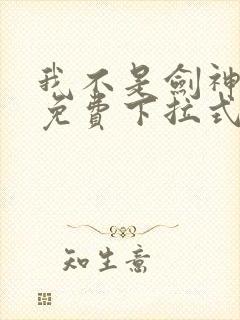 我不是劍神
免費下拉式
知生意